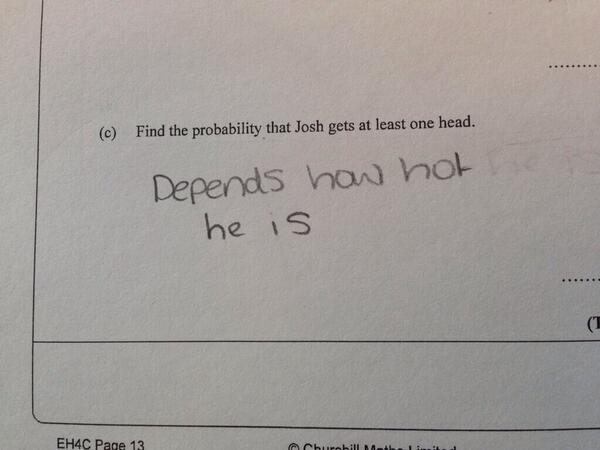 (c) Find the probability that Josh gets at least one head.
Depends how hot
he is
(T
EH4C Page 13
© Churchill Maths Limited